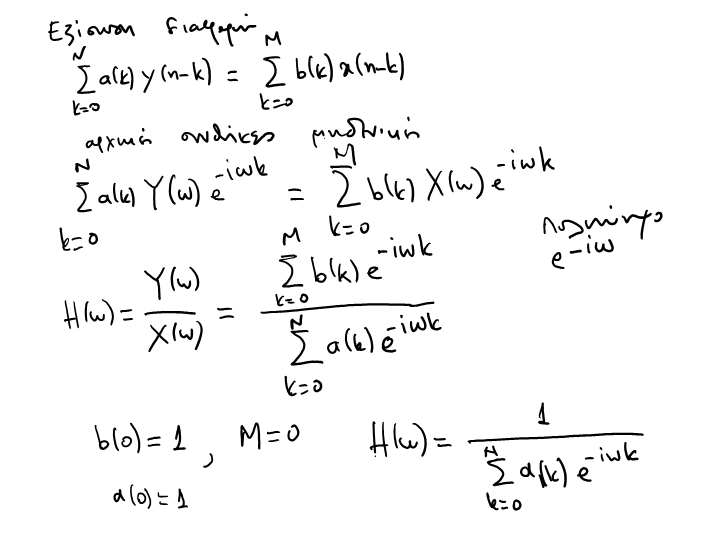 Εξίσωση διαφορών
\sum_{k=0}^{N} a(k) y(n-k) = \sum_{k=0}^{M} b(k) x(n-k)
αρχικές συνθήκες μηδενικές
\sum_{k=0}^{N} a(k) Y(ω) e^{-iωk} = \sum_{k=0}^{M} b(k) X(ω) e^{-iωk}
e^{-iω}
H(ω) = \frac{Y(ω)}{X(ω)} = \frac{\sum_{k=0}^{M} b(k) e^{-iωk}}{\sum_{k=0}^{N} a(k) e^{-iωk}}
b(0) = 1, M=0 H(ω) = \frac{1}{\sum_{k=0}^{N} a(k) e^{-iωk}}
a(0) = 1